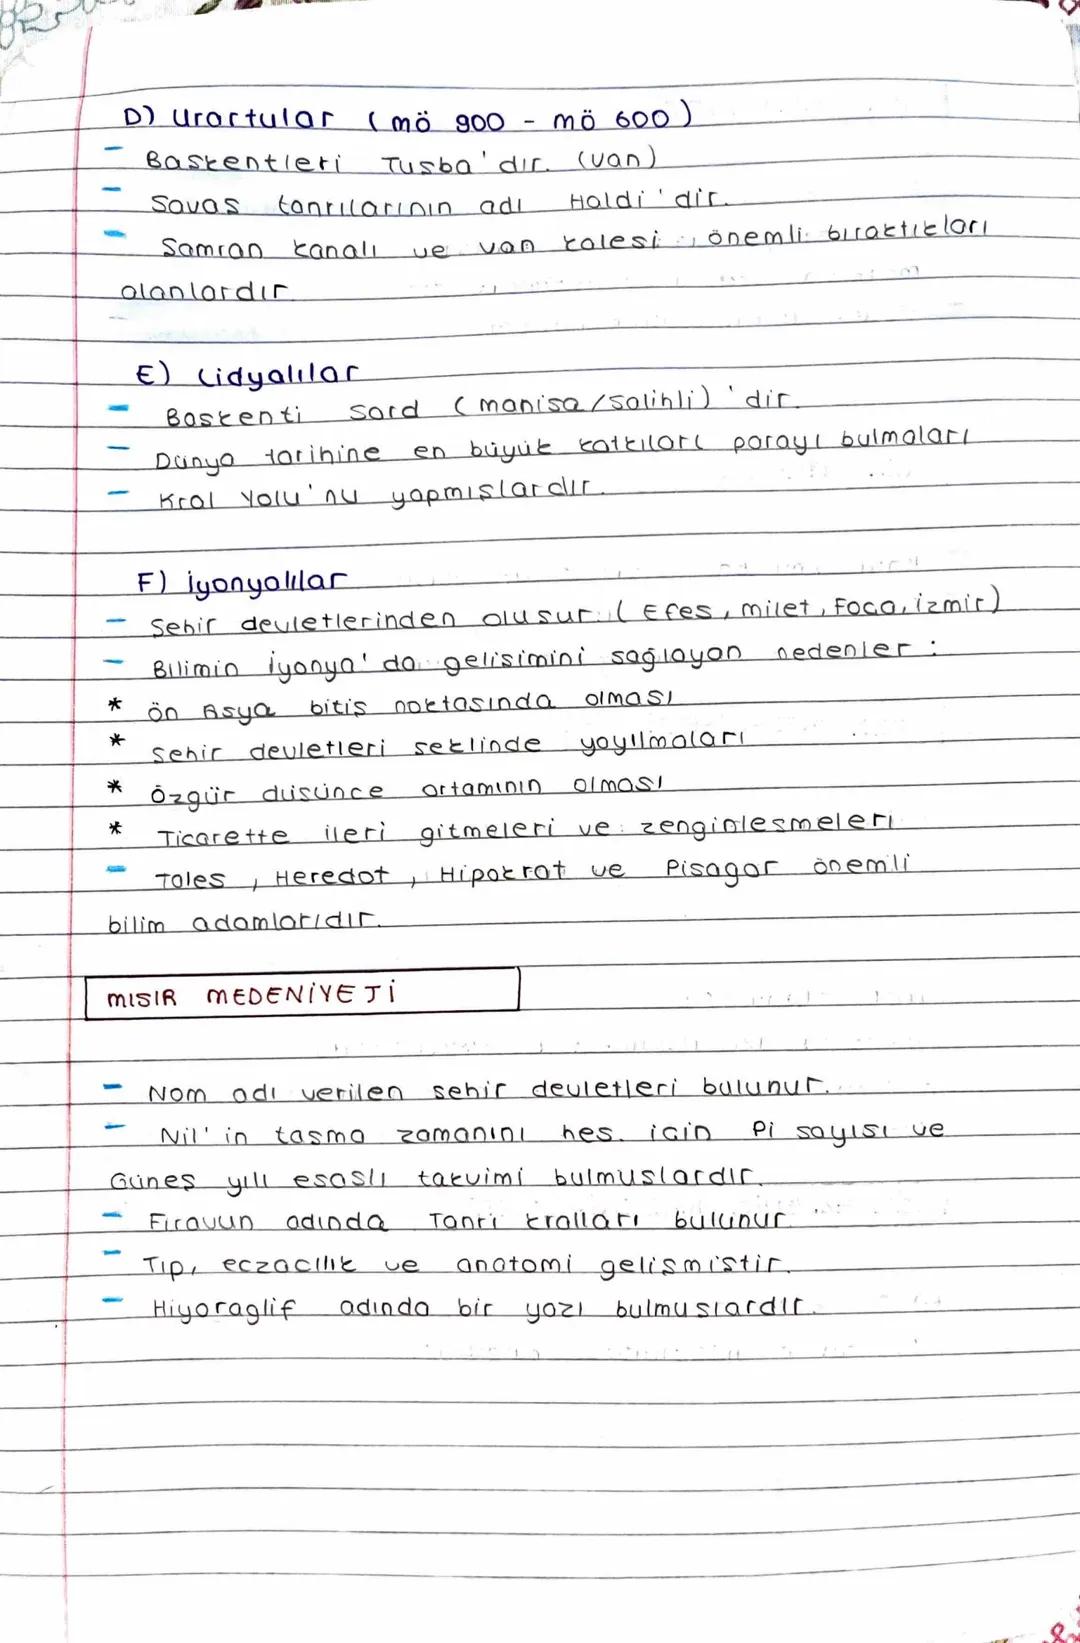 D) Urartular (mö 900 - mö 600)
- Baskentleri Tusba'dır. (van)
- Savas tanrılarının adı Haldi'dir.
- Samran kanalı ve van kalesi, önemli bıraktıkları
alanlardır.
E) Lidyalılar
- Baskenti Sard (manisa/salihli)'dir.
- Dünya tarihine en büyük katkıları parayı bulmaları
- Kral Yolu'nu yapmıslardır.
F) İyonyalılar
- Sehir devletlerinden olusur. (Efes, milet, Foca, izmir)
- Bilimin İyonya'da gelisimini sağlayan nedenler :
* ön Asya bitis noktasında olması
* sehir devletleri seklinde yayılmaları
* Özgür düsünce ortamının olması
* Ticarette ileri gitmeleri ve zenginlesmeleri
- Tales, Heredot, Hipokrat ve Pisagor önemli
bilim adamlarıdır.
MISIR MEDENİYETİ
- Nom adı verilen sehir devletleri bulunur.
- Nil'in tasma zamanını hes. icin Pi sayısı ve
Günes yılı esaslı takvimi bulmuslardır.
- Firavun adında Tanrı kralları bulunur.
- Tıp, eczacılık ve anatomi gelismistir.
- Hiyoraglif adında bir yazı bulmuslardır.